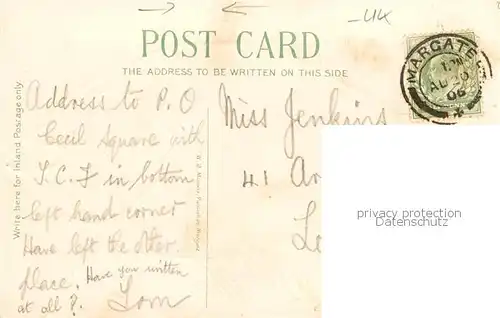 UK
POST CARD
THE ADDRESS TO BE WRITTEN ON THIS SIDE
MARGATE
AU 20
06
Write here for Inland Postage only
Address to P.O
Cecil Square with
T.C.F in bottom
left hand corner
Have left the other
place. Have you written
at all? Tom
Miss Jenkins
41 Ar
L
privacy protection
Datenschutz